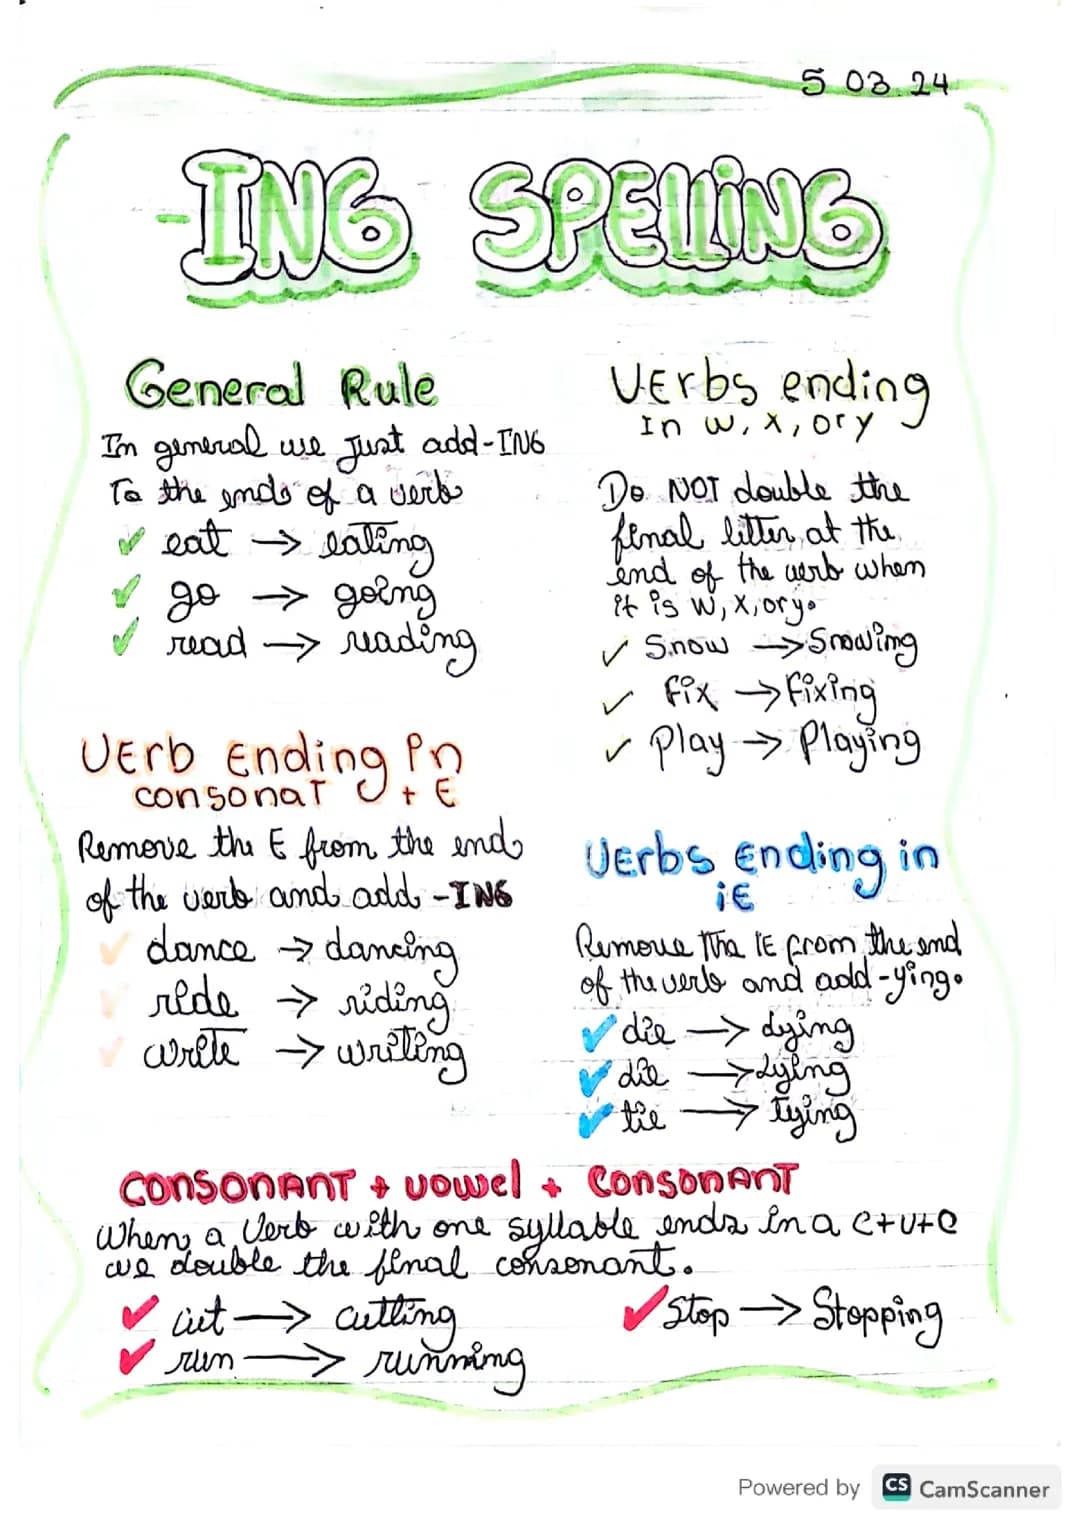 5 03 24
-ING SPELLiNG
General Rule
In general we just add-ING
To the ends of a verb
eat → eating
go → going
read → reading
Verbs ending
In w, x, or y
Do NOT double the
final litter, at the
end of the verb when
it is w, x, or y.
Snow → Snowing
fix → fixing
Play → Playing
VErb Ending in
consonaT + E
Remove the E from the end
of the verb and add -ING
dance → dancing
ride → riding
write → writing
VErbs Ending in
iE
Remove Tha IE from the end
of the verb and add -ying.
die → dying
die → Lying
tie → Tying
CONSONANT + vowel + CONSONANT
When a Verb with one syllable ends in a C+V+C
we double the final consonant.
cut → cutting
run → running
Stop → Stopping
Powered by CS CamScanner